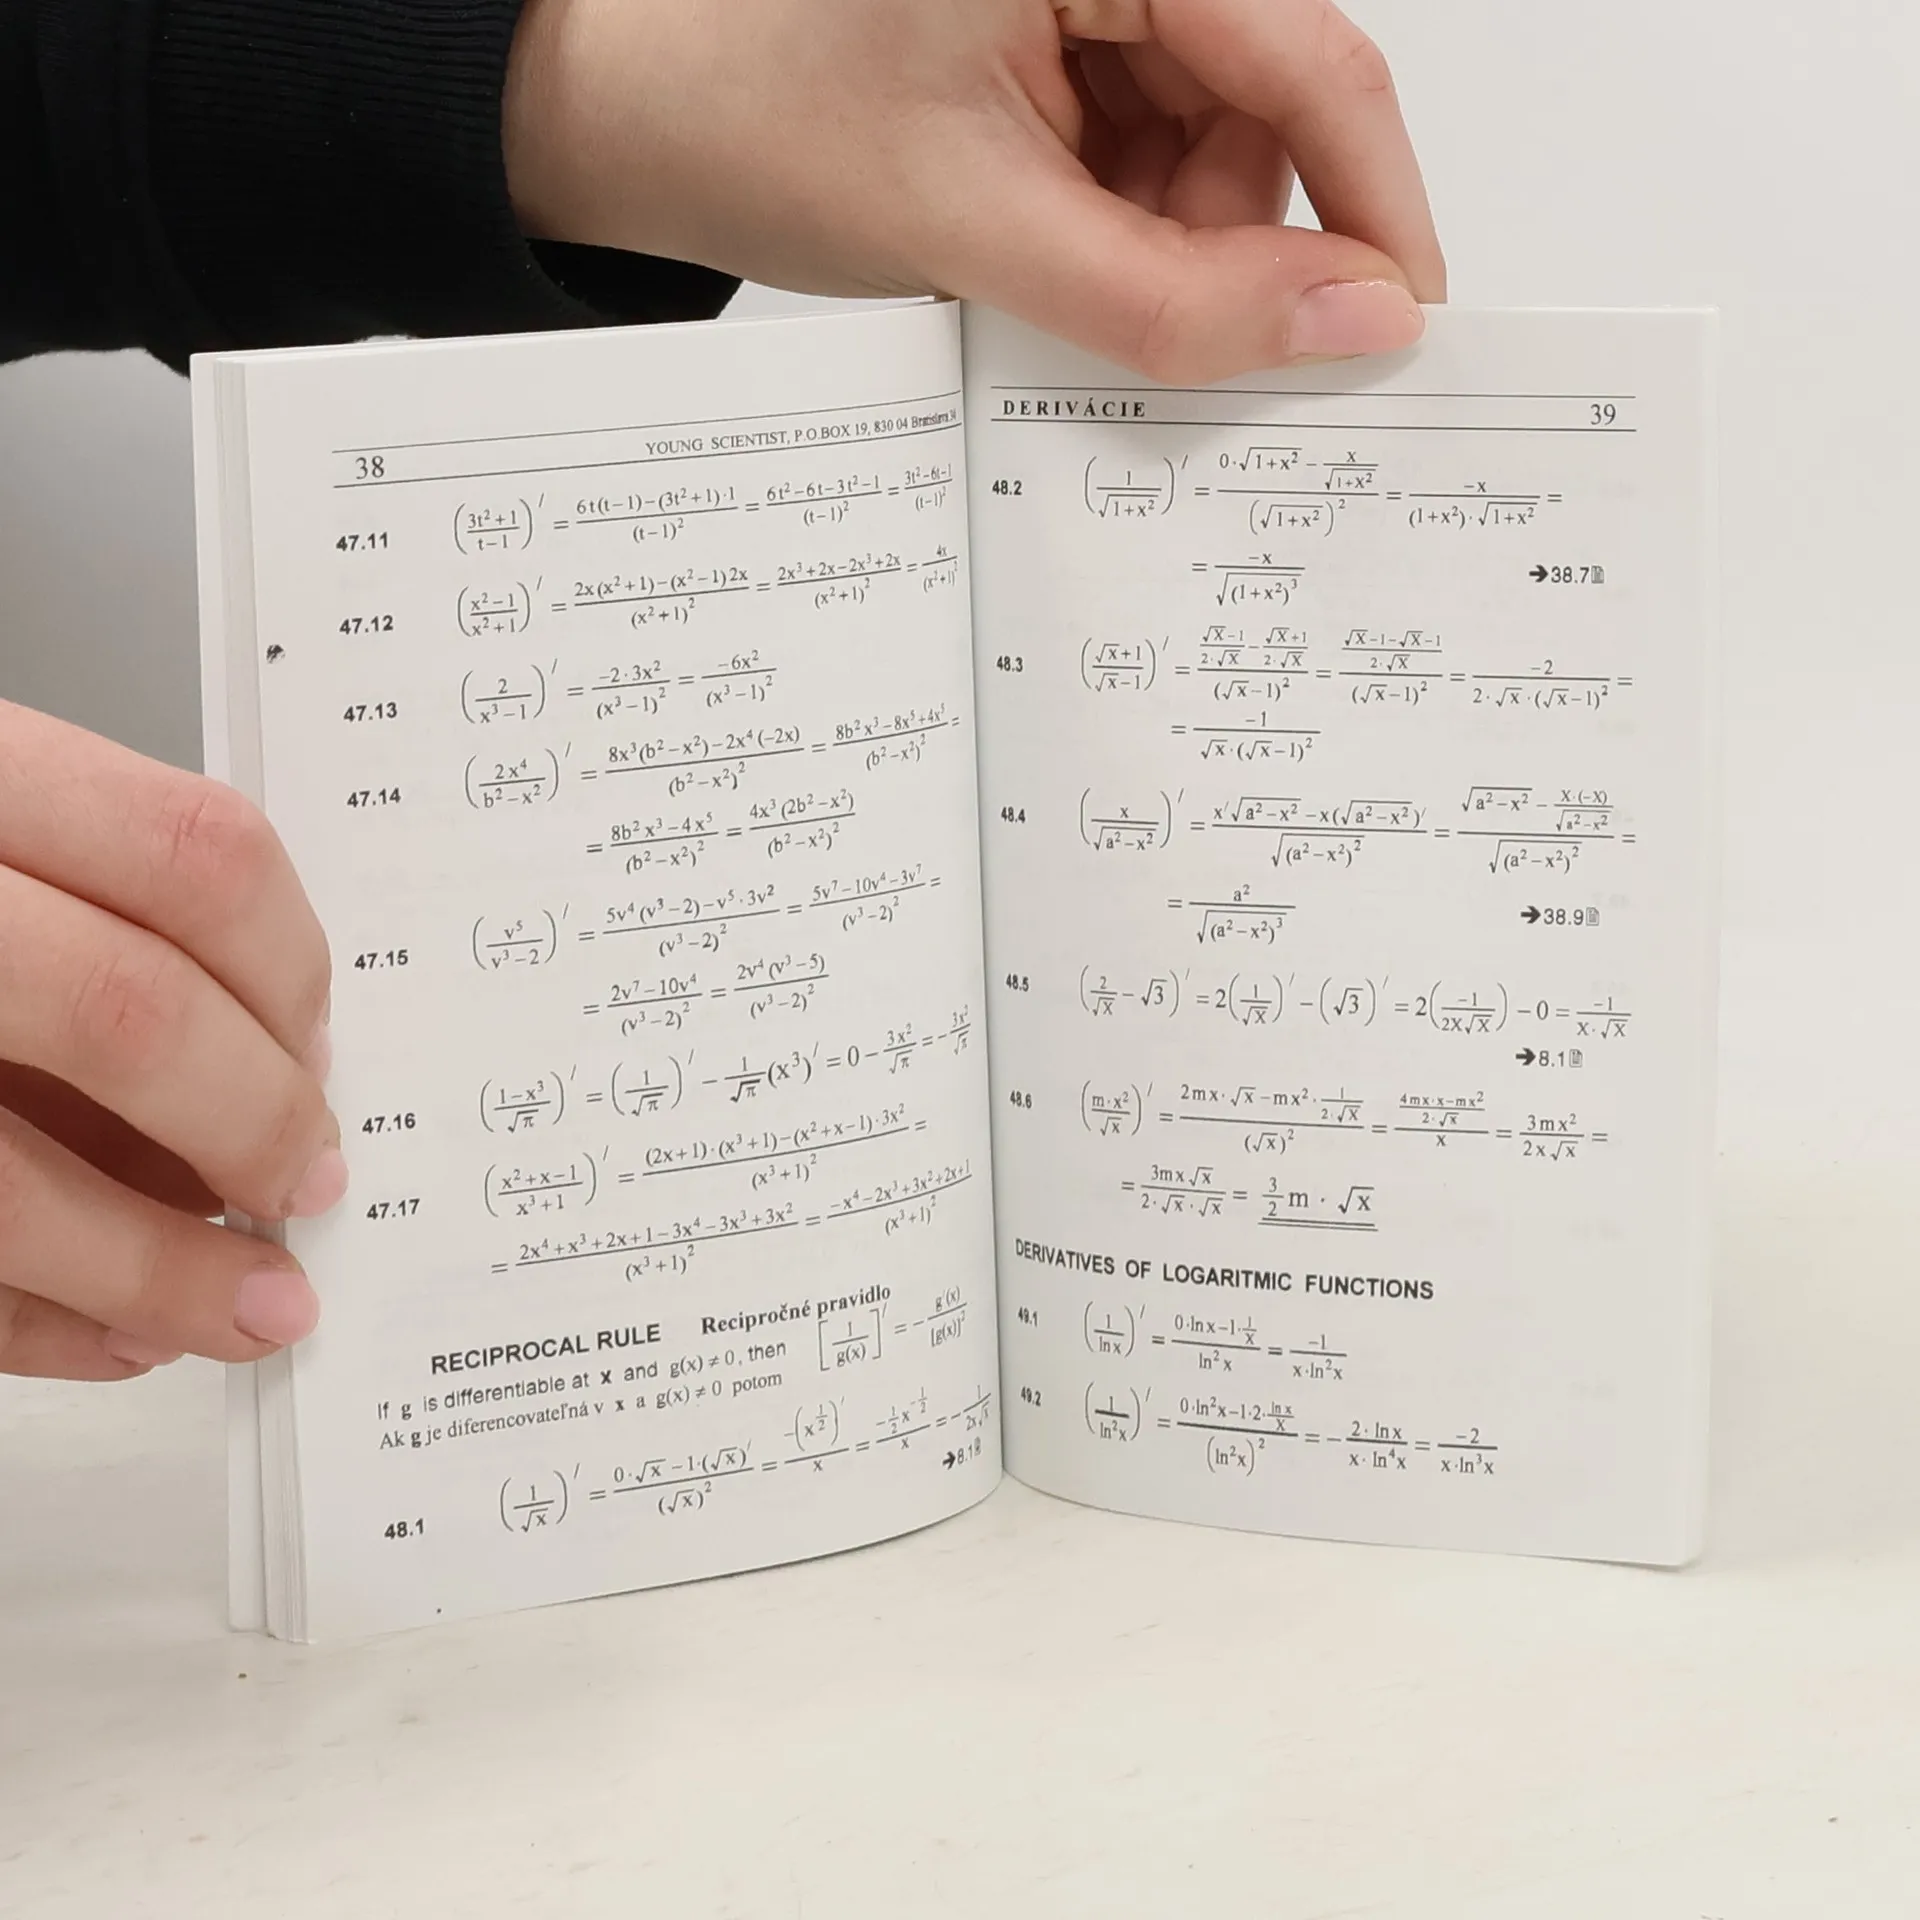 38 YOUNG SCIENTIST, P.O.BOX 19, 830 04 Bratislava 34
47.11 (3t²+1 / t−1)′ = 6t(t−1)−(3t²+1)·1 / (t−1)² = 6t²−6t−3t²−1 / (t−1)² = 3t²−6t−1 / (t−1)²
47.12 (x²−1 / x²+1)′ = 2x(x²+1)−(x²−1)2x / (x²+1)² = 2x³+2x−2x³+2x / (x²+1)² = 4x / (x²+1)²
47.13 (2 / x³−1)′ = −2·3x² / (x³−1)² = −6x² / (x³−1)²
47.14 (2x⁴ / b²−x²)′ = 8x³(b²−x²)−2x⁴(−2x) / (b²−x²)² = 8b²x³−8x⁵+4x⁵ / (b²−x²)² =
= 8b²x³−4x⁵ / (b²−x²)² = 4x³(2b²−x²) / (b²−x²)²
47.15 (v⁵ / v³−2)′ = 5v⁴(v³−2)−v⁵·3v² / (v³−2)² = 5v⁷−10v⁴−3v⁷ / (v³−2)² =
= 2v⁷−10v⁴ / (v³−2)² = 2v⁴(v³−5) / (v³−2)²
47.16 (1−x³ / √π)′ = (1 / √π)′ − 1/√π (x³)′ = 0 − 3x²/√π = − 3x²/√π
47.17 (x²+x−1 / x³+1)′ = (2x+1)·(x³+1)−(x²+x−1)·3x² / (x³+1)² =
= 2x⁴+x³+2x+1−3x⁴−3x³+3x² / (x³+1)² = −x⁴−2x³+3x²+2x+1 / (x³+1)²
RECIPROCAL RULE Recipročné pravidlo
If g is differentiable at x and g(x) ≠ 0, then [1 / g(x)]′ = − g′(x) / [g(x)]²
Ak g je diferencovateľná v x a g(x) ≠ 0 potom
48.1 (1 / √x)′ = 0·√x −1·(√x)′ / (√x)² = −(x^½)′ / x = −½x^−½ / x = − 1 / 2x√x
➔8.1
DERIVÁCIE 39
48.2 (1 / √1+x²)′ = 0·√1+x² − x/√1+x² / (√1+x²)² = −x / (1+x²)·√1+x² =
= −x / √(1+x²)³ ➔38.7
48.3 (√x+1 / √x−1)′ = √x−1 / 2·√x − √x+1 / 2·√x / (√x−1)² = √x−1−√x−1 / 2·√x / (√x−1)² = −2 / 2·√x·(√x−1)² =
= −1 / √x·(√x−1)²
48.4 (x / √a²−x²)′ = x′√a²−x² −x(√a²−x²)′ / √(a²−x²)² = √a²−x² − x·(−x)/√a²−x² / √(a²−x²)² =
= a² / √(a²−x²)³ ➔38.9
48.5 (2/√x − √3)′ = 2(1/√x)′ − (√3)′ = 2(−1 / 2x√x) − 0 = −1 / x·√x
➔8.1
48.6 (m·x² / √x)′ = 2mx·√x −mx²· 1/2·√x / (√x)² = 4mx·x−mx² / 2·√x / x = 3mx² / 2x√x =
= 3mx√x / 2·√x·√x = 3/2 m · √x
DERIVATIVES OF LOGARITMIC FUNCTIONS
49.1 (1 / ln x)′ = 0·ln x−1·1/x / ln²x = −1 / x·ln²x
49.2 (1 / ln²x)′ = 0·ln²x−1·2·ln x/x / (ln²x)² = − 2·ln x / x·ln⁴x = −2 / x·ln³x